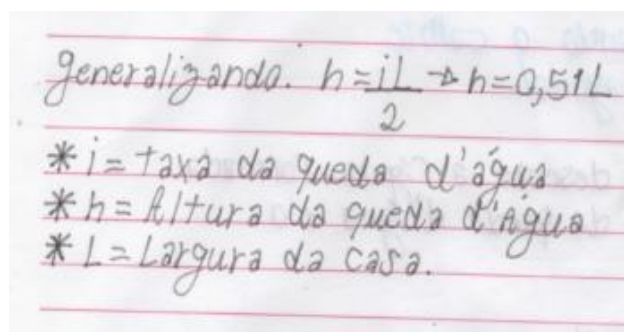 generalizando. h = iL/2 → h = 0,5iL
* i = taxa da queda d'água
* h = Altura da queda d'Água
* L = Largura da casa.